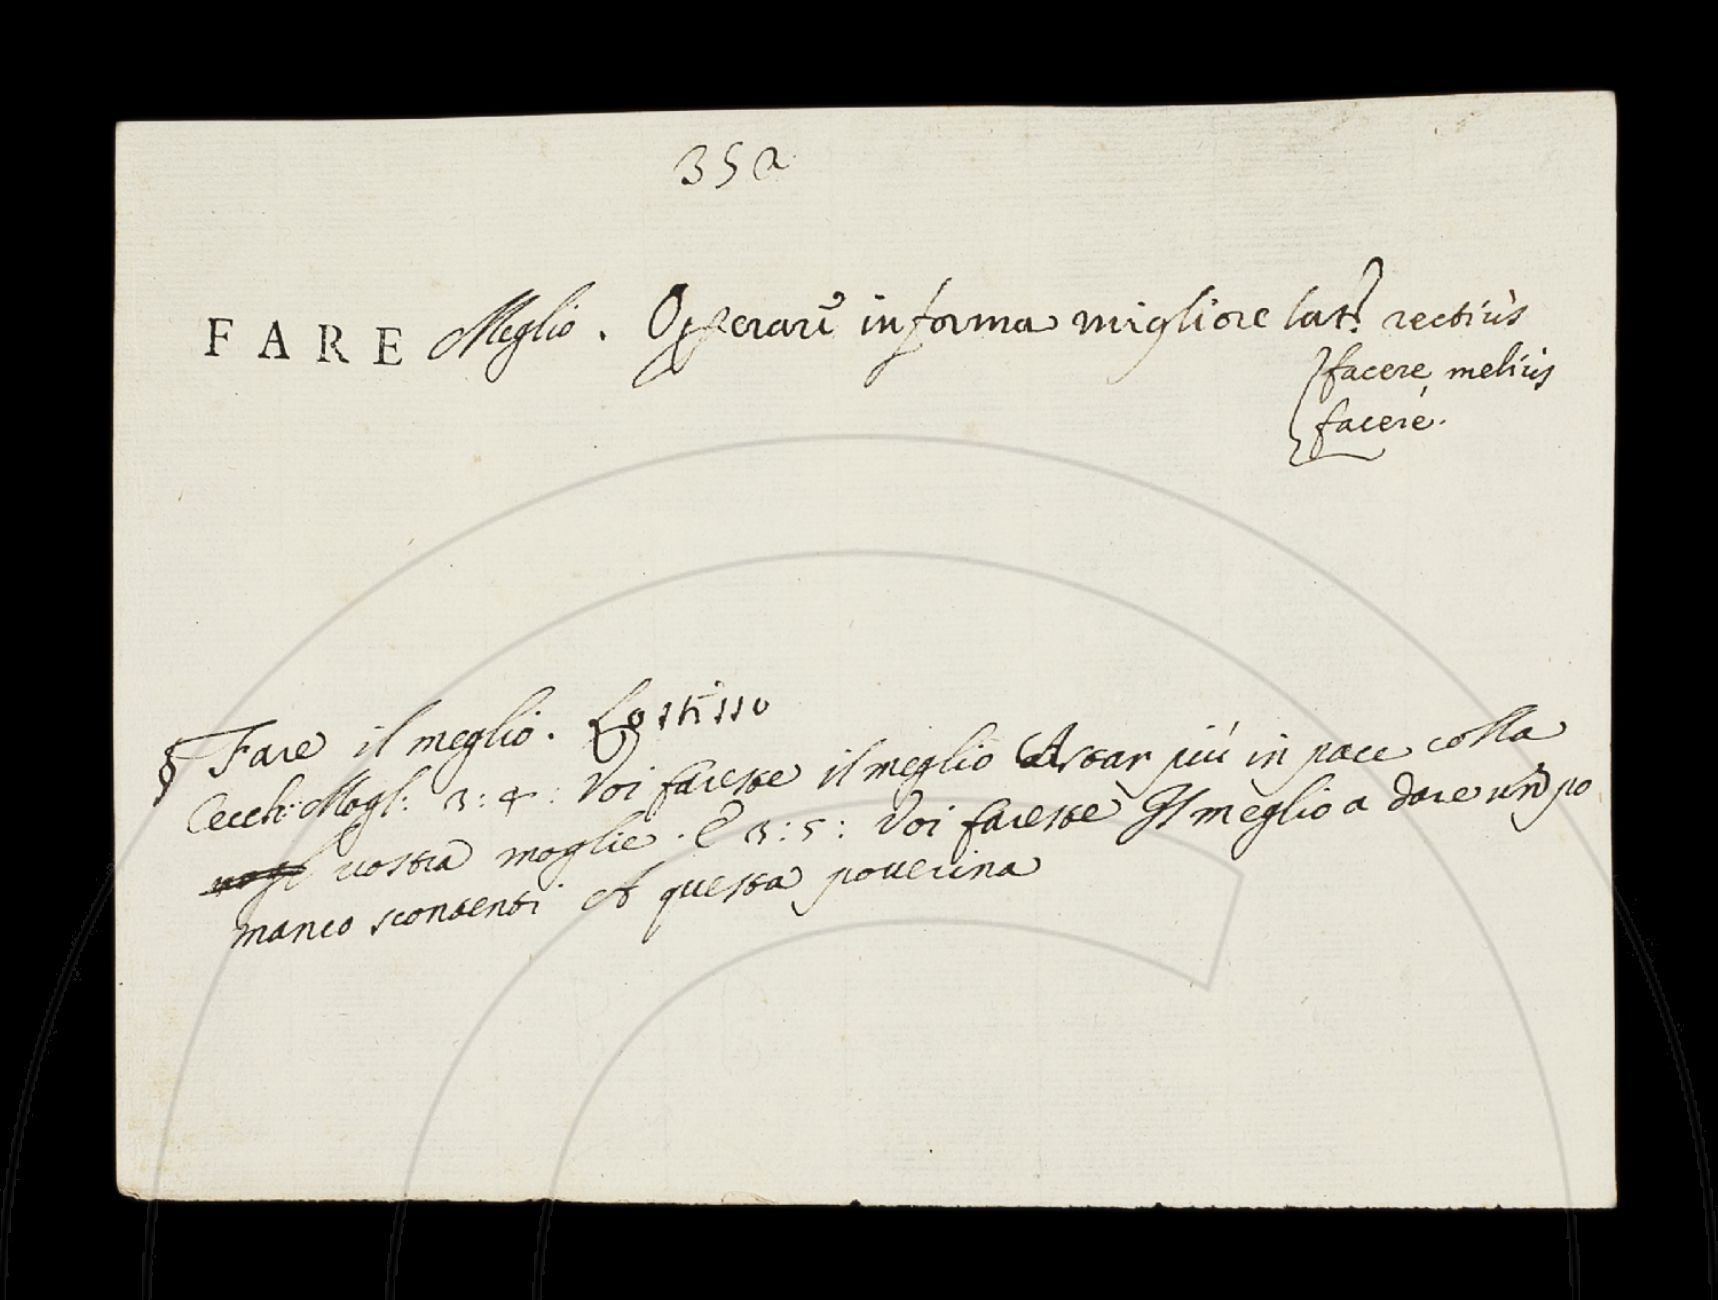 35a
FARE Meglio. Operare in forma migliore lat: rectiùs
facere, meliùs
facere.
§ Fare il meglio. Lo stesso
Cecch: Mogl: 3: 4: Voi fareste il meglio A star più in pace colla
vostra moglie. E 3: 5: Voi fareste Il meglio a dare un po
manco scontenti A questa pouerina